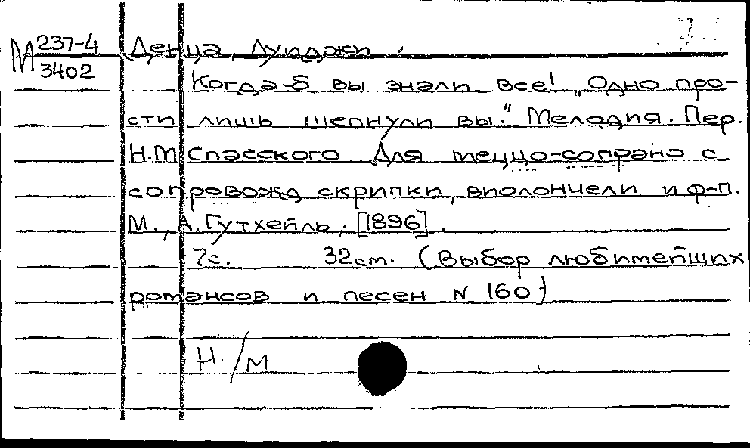 М 237-4 Денца, Луиджи.
3402
Когда-б вы знали все! „Одно про-
сти лишь шепнули вы." Мелодия. Пер.
Н.М Спасского Для меццо-сопрано с
сопровожд скрипки, виолончели и ф-п.
М., А. Гутхейль, [1896].
7с. 32см. (Выбор любимейших
романсов и песен N 160)
Н/М